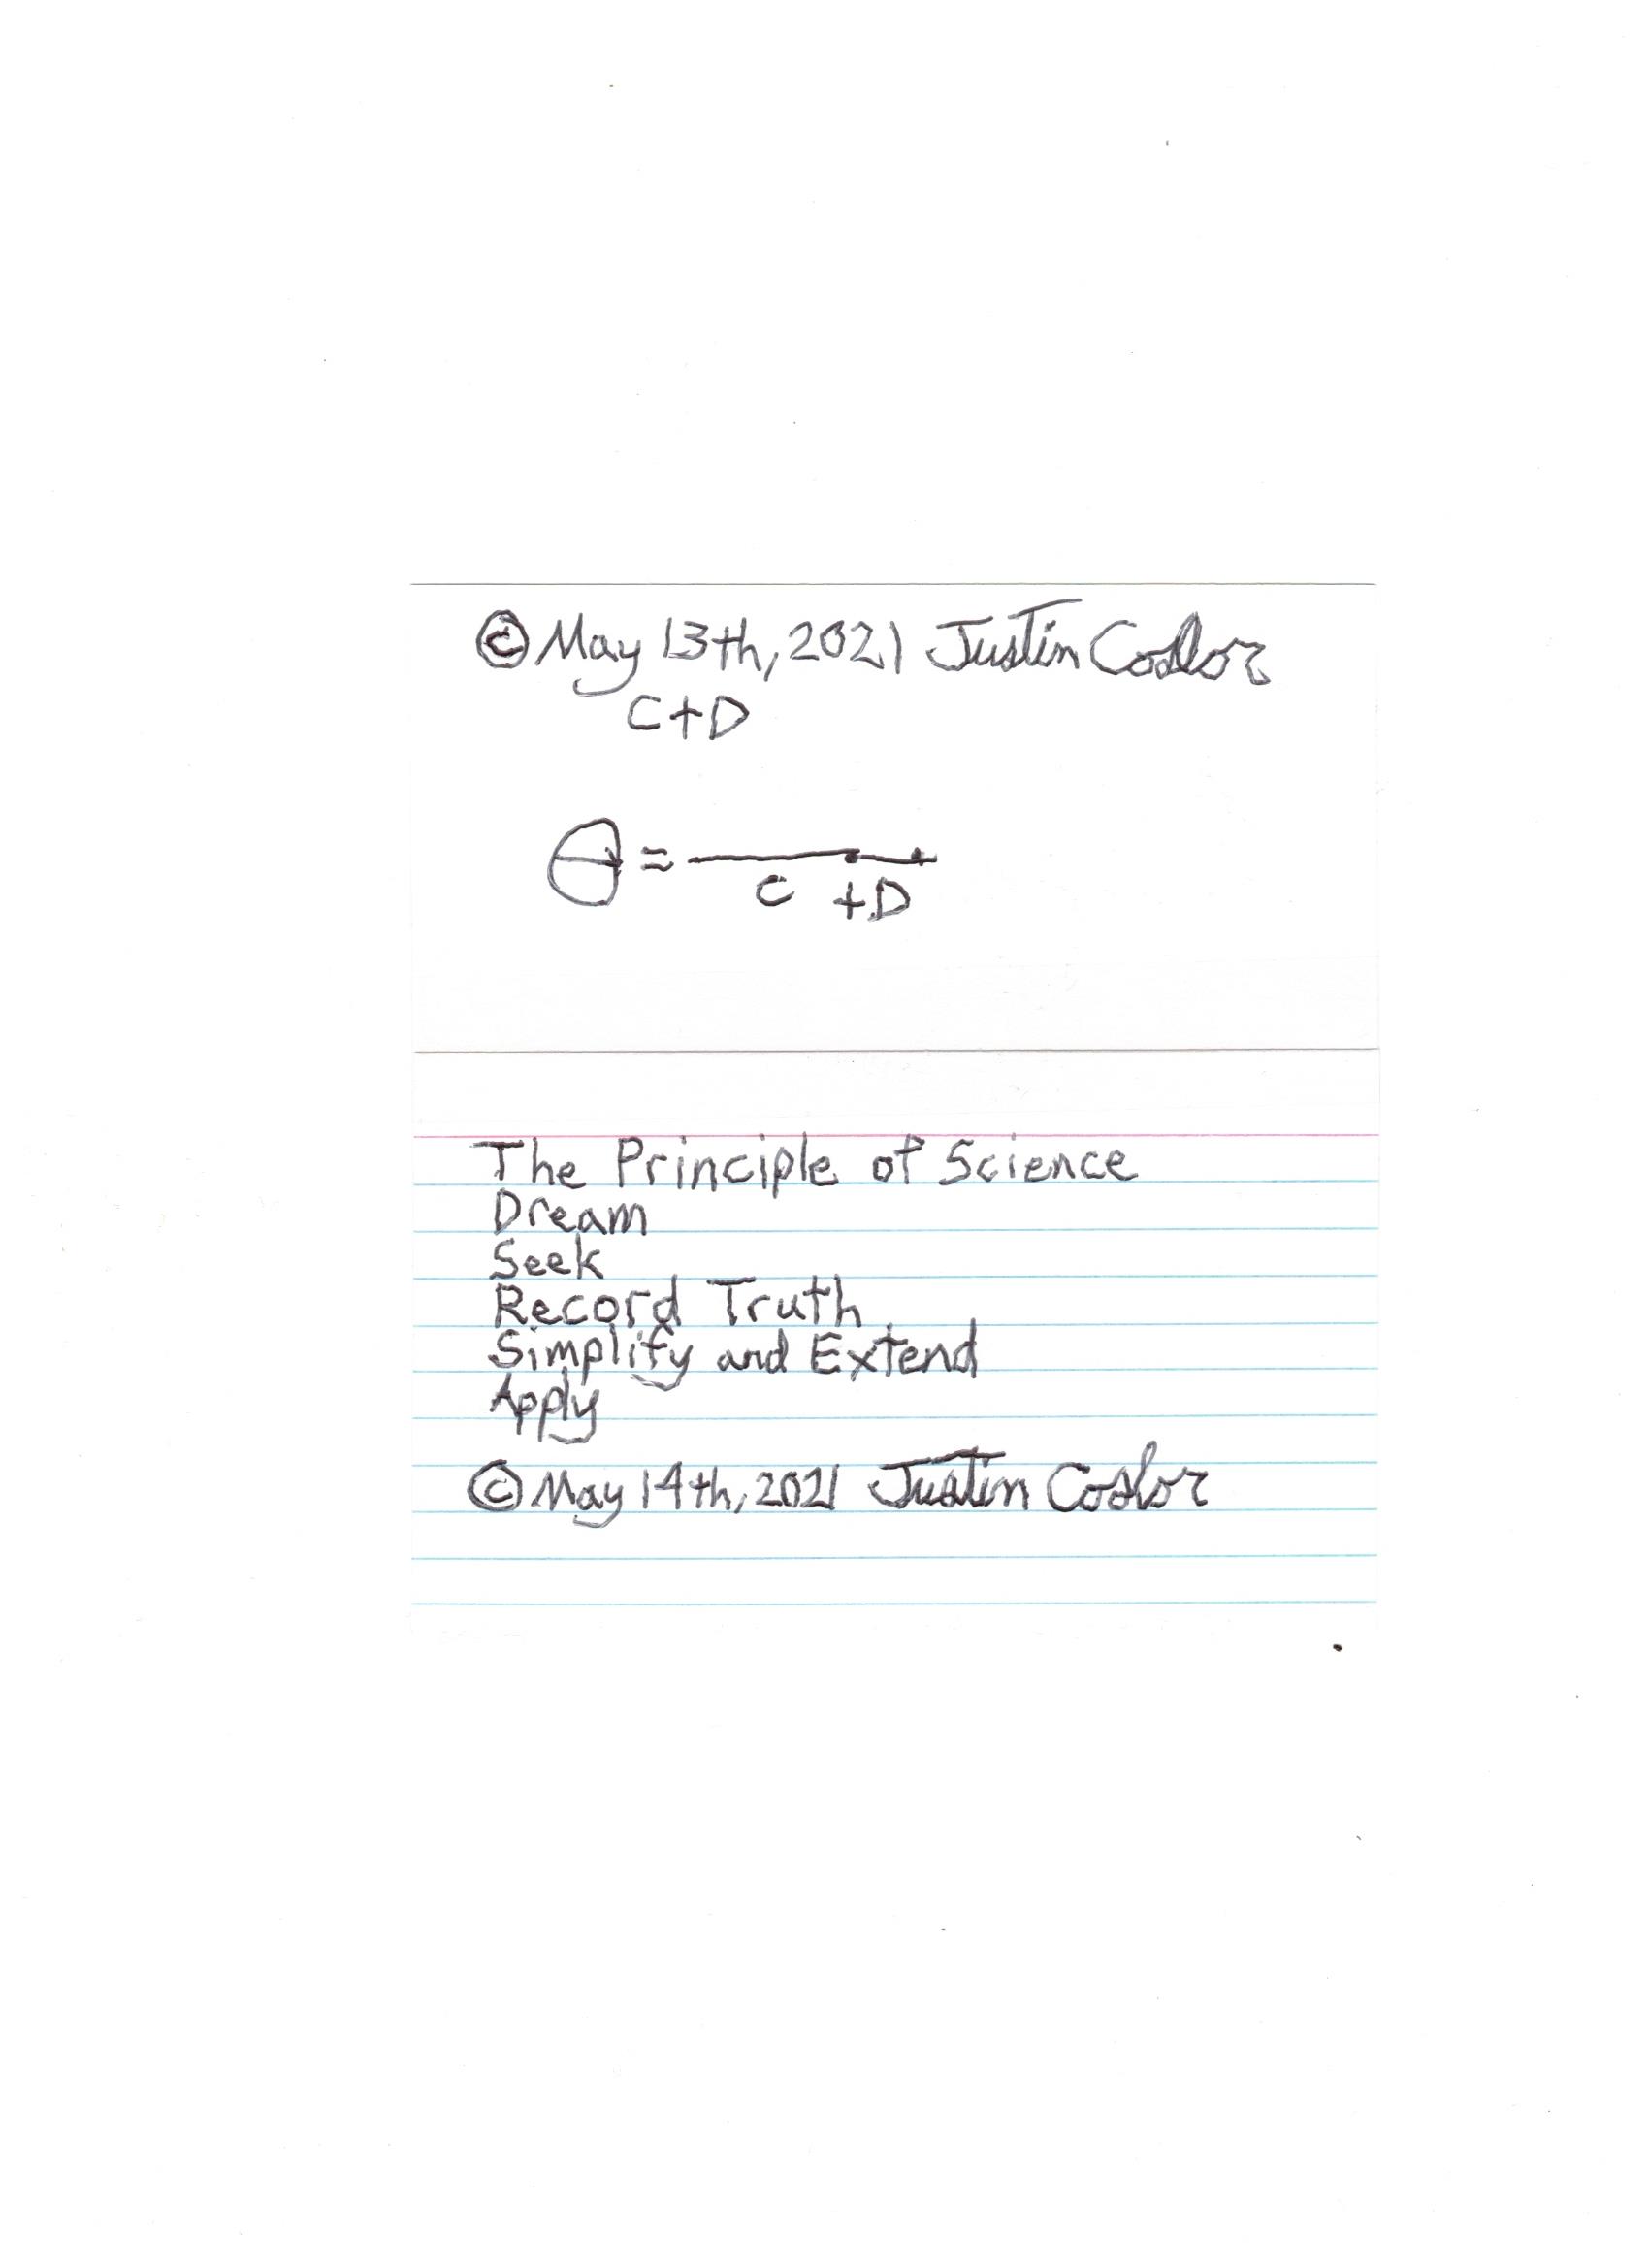 © May 13th, 2021 Justin Coslor
C+D
= C +D
The Principle of Science
Dream
Seek
Record Truth
Simplify and Extend
Apply
© May 14th, 2021 Justin Coslor